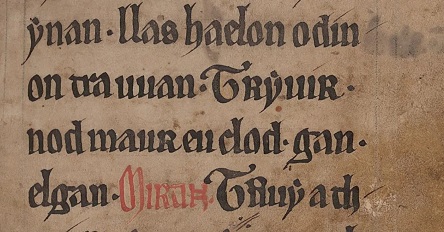 ẏnan · llas haelon o din
on tra uuan · Trẏuir ·
nod maur eu clod · gan ·
elgan · Mirtin. Truẏ a th